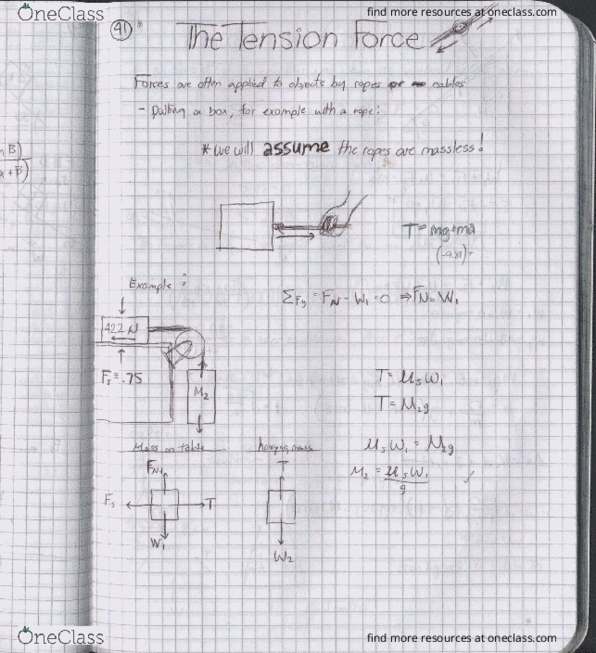 OneClass
find more resources at oneclass.com
41
The Tension Force
Forces are often applied to objects by ropes or cables
- Pulling a box, for example with a rope:
* we will assume the ropes are massless!
T = mg + ma
Example:
ΣFy = FN - W1 = 0 ⇒ FN = W1
422 N
Fs = .75
M2
T = μsW1
T = M2g
Mass on table
hanging mass
μsW1 = M2g
M2 = μsW1 / g
FN
T
Fs
T
W1
W2
OneClass
find more resources at oneclass.com